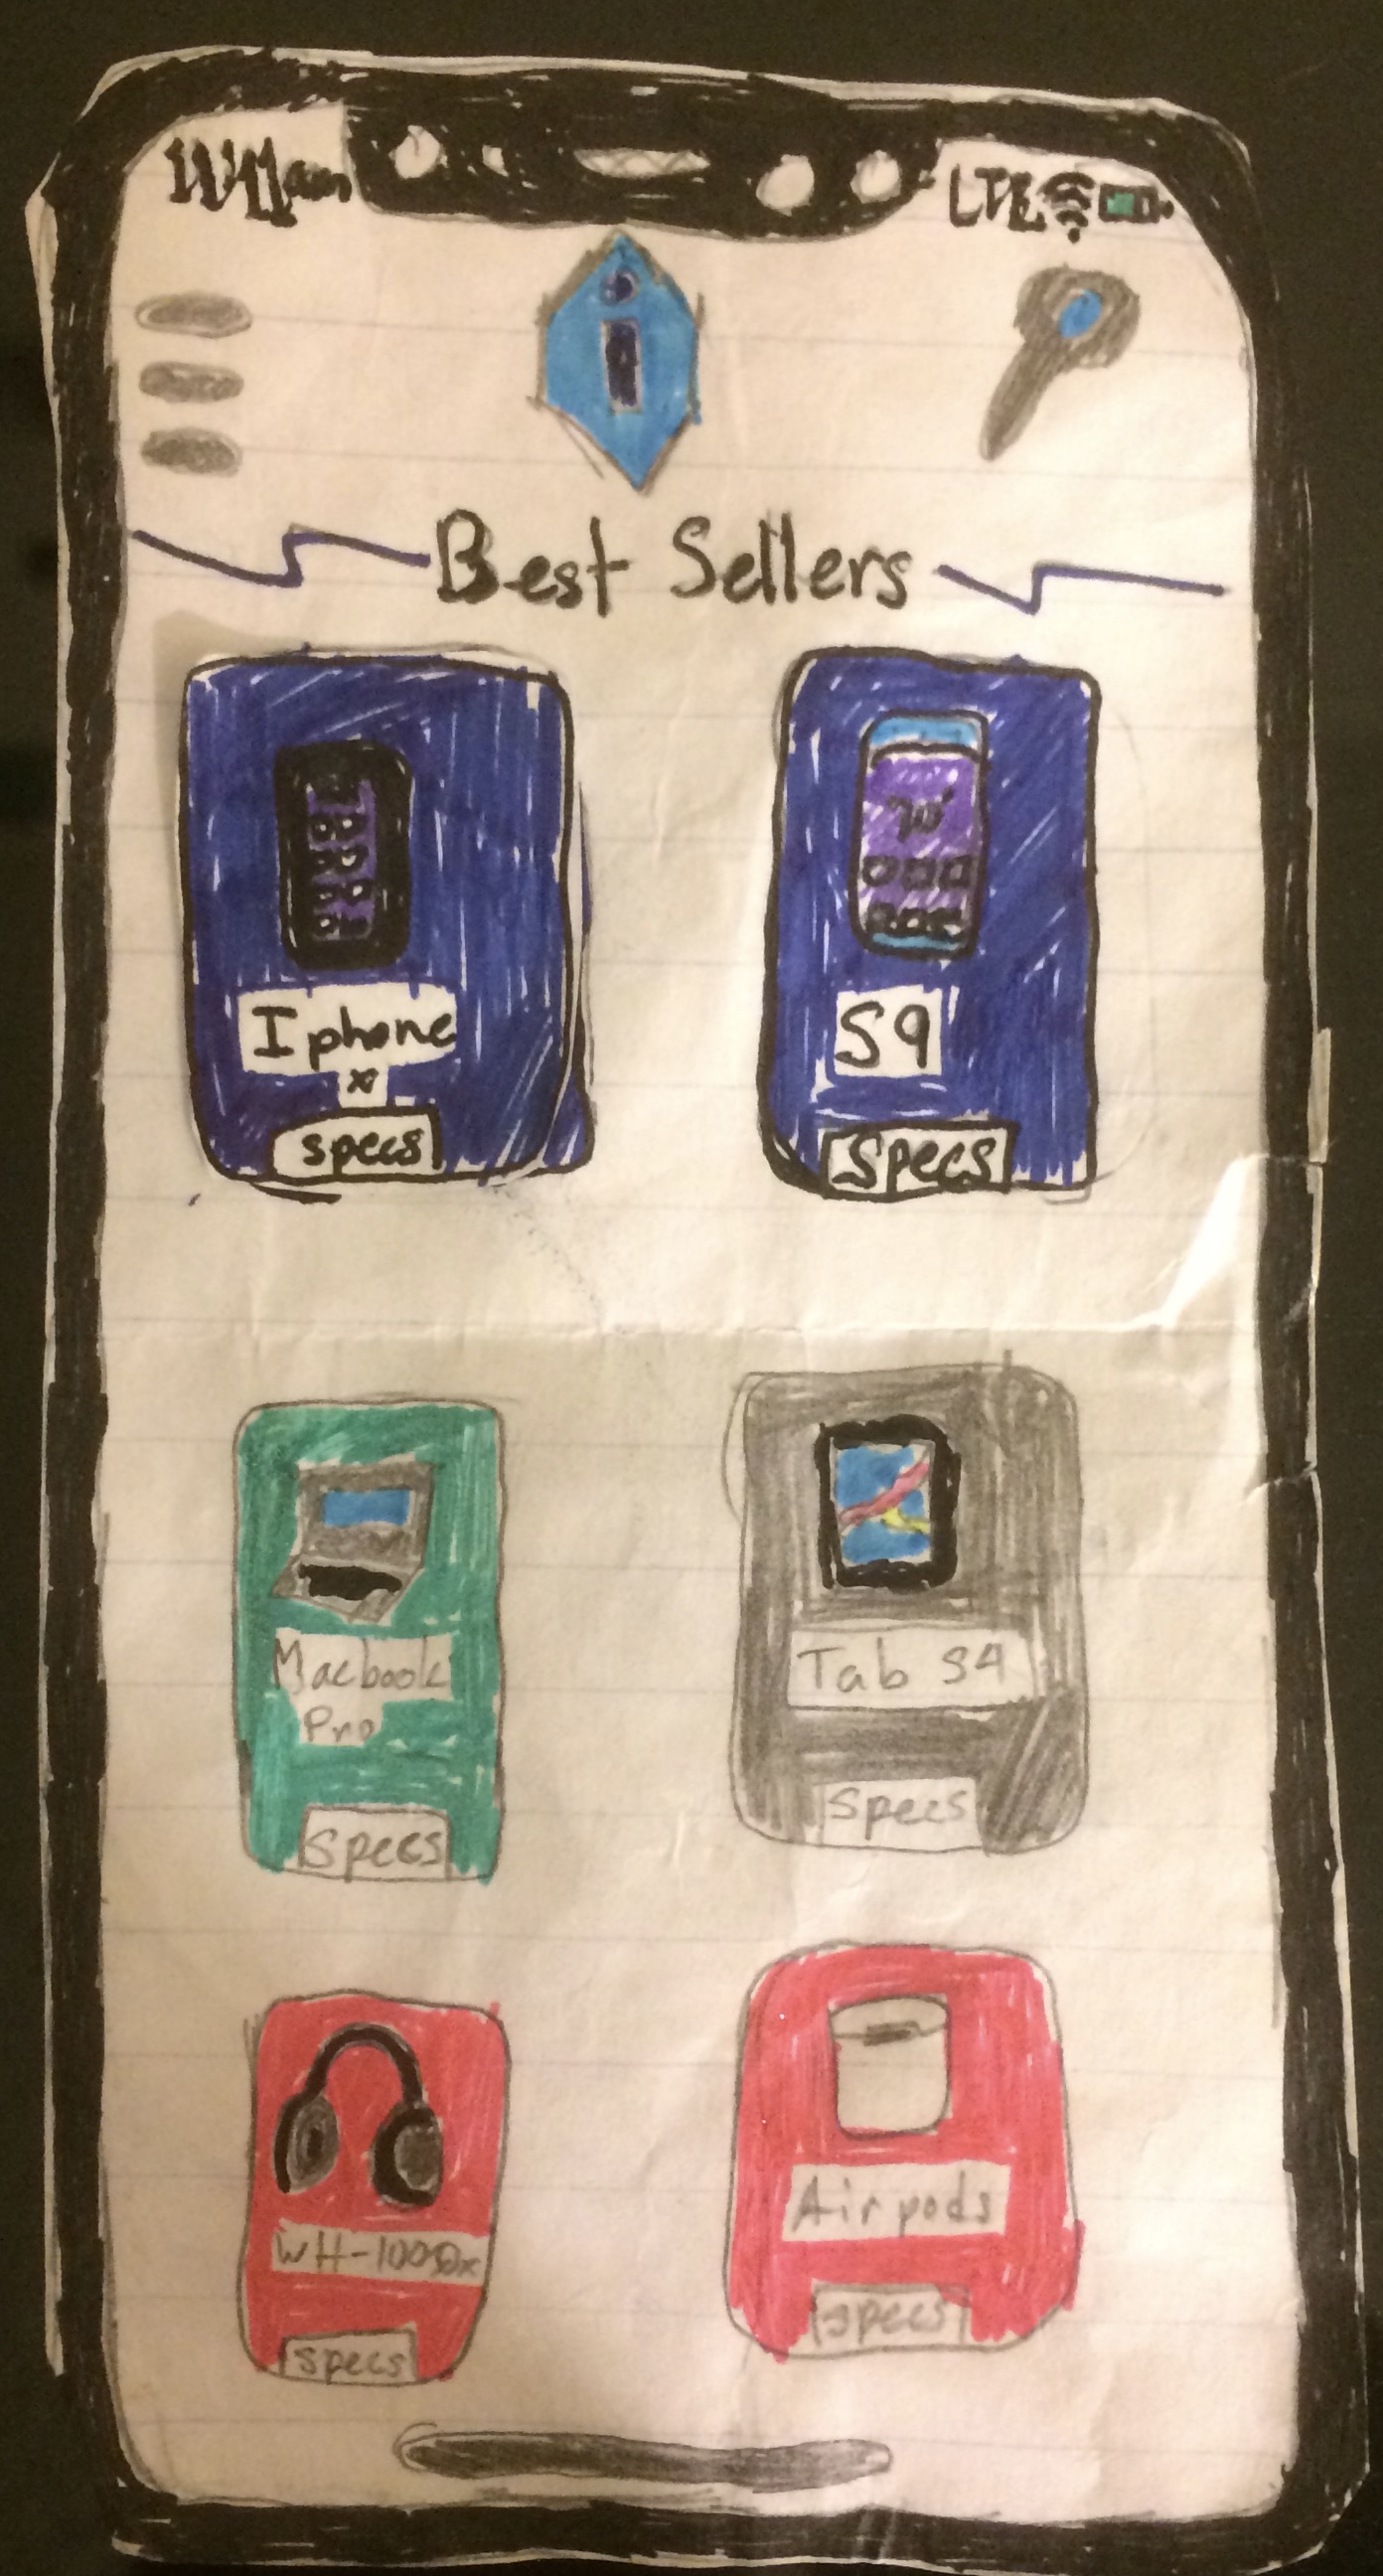 LTE
i
Best Sellers
Iphone
x
specs
S9
specs
Macbook
Pro
Specs
Tab S4
Specs
specs
Airpods
specs